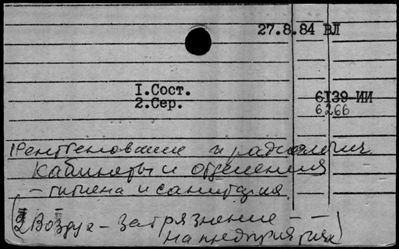 27.8.84 ВЛ
1.Сост.
2.Сер.
6139 ИИ
6266
Рентгеновские и радиология
кабинеты и отделения
- гигиена и санитария.
(2 Воздух - загрязнение -
на предприятиях)